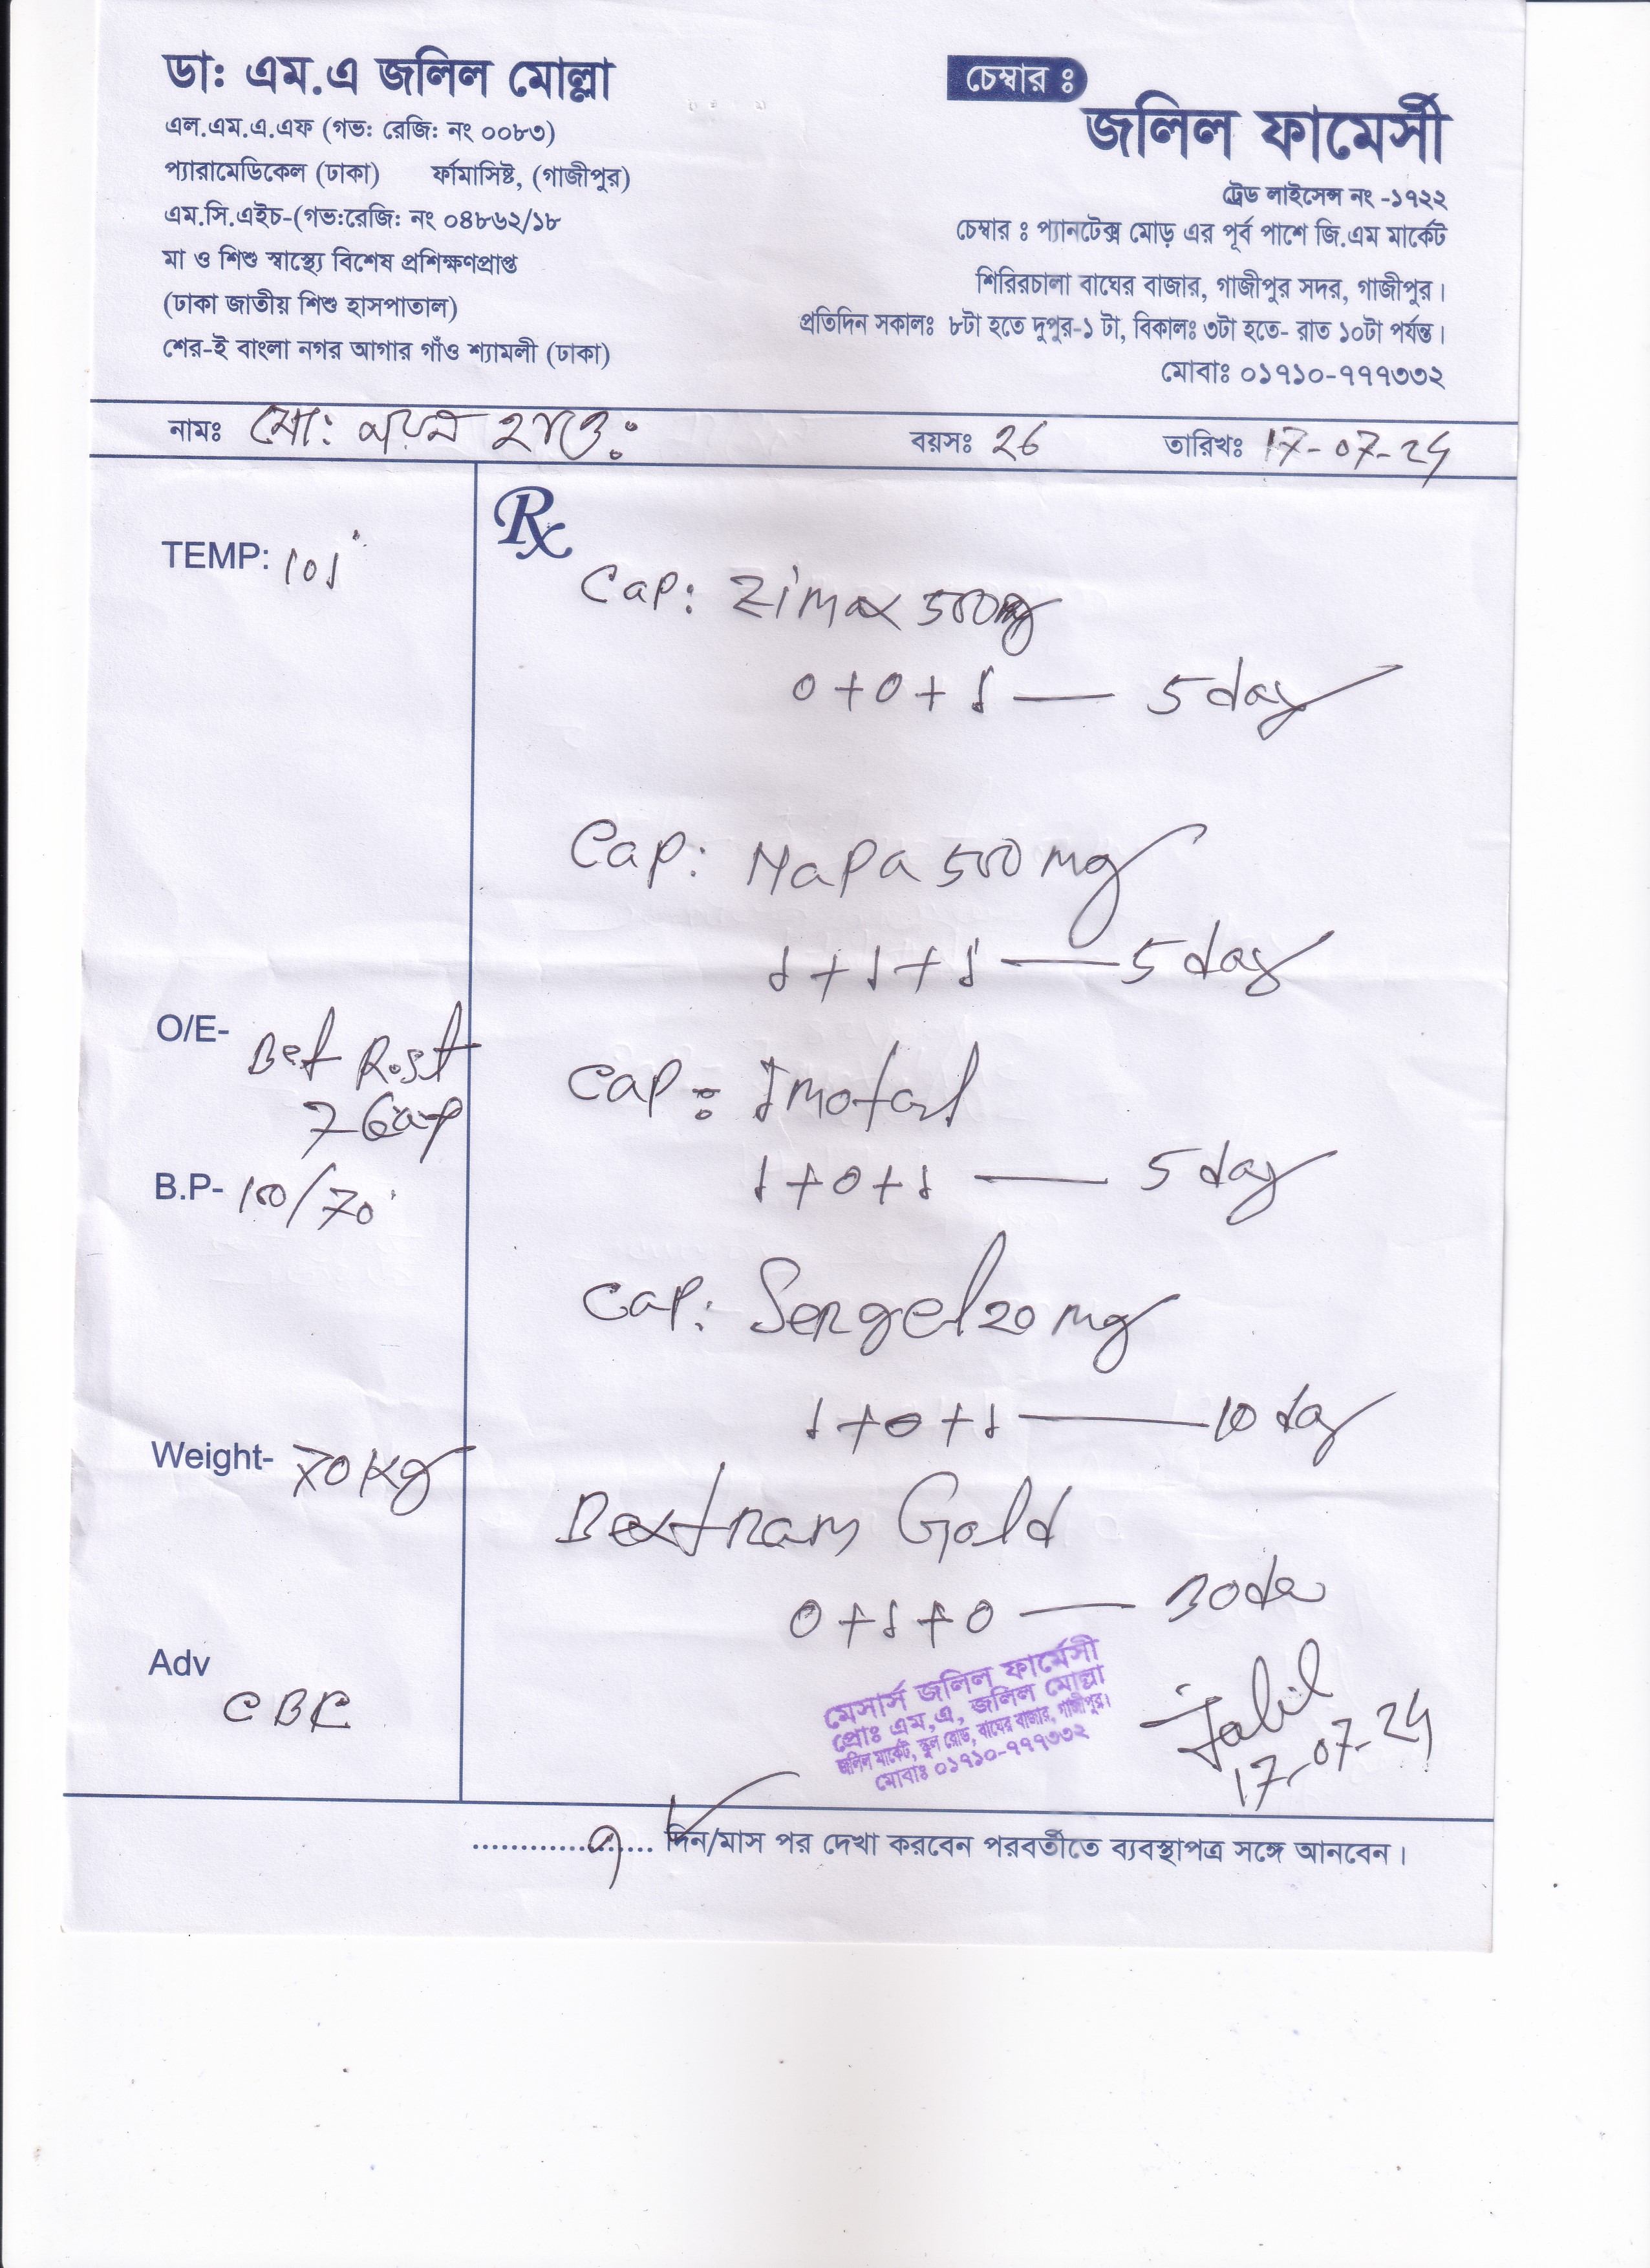 ডা: এম.এ জলিল মোল্লা
এল.এম.এ.এফ (গভ: রেজি: নং ০০৮৩)
প্যারামেডিকেল (ঢাকা) ফার্মাসিষ্ট, (গাজীপুর)
এম.সি.এইচ-(গভ:রেজি: নং ০৪৮৬২/১৮
মা ও শিশু স্বাস্থ্যে বিশেষ প্রশিক্ষণপ্রাপ্ত
(ঢাকা জাতীয় শিশু হাসপাতাল)
শের-ই বাংলা নগর আগার গাঁও শ্যামলী (ঢাকা)
চেম্বার ঃ
জলিল ফামের্সী
ট্রেড লাইসেন্স নং -১৭২২
চেম্বার ঃ প্যানটেক্স মোড় এর পূর্ব পাশে জি.এম মার্কেট
শিরিরচালা বাঘের বাজার, গাজীপুর সদর, গাজীপুর।
প্রতিদিন সকালঃ ৮টা হতে দুপুর-১ টা, বিকালঃ ৩টা হতে- রাত ১০টা পর্যন্ত।
মোবাঃ ০১৭১০-৭৭৭৩৩২
নামঃ মো: বয়সঃ 26 তারিখঃ 17-07-24
TEMP: 101°
O/E- Bet Rest
7 day
B.P- 100/70
Weight- 70 Kg
Adv
CBC
Rx
Cap: Zimax 500mg
0+0+1 — 5 day
Cap: Napa 500 mg
1+1+1 — 5 day
Cap: Imotarl
1+0+1 — 5 day
Cap: Sergel 20 mg
1+0+1 — 10 day
Bextram Gold
0+1+0 — 30 da
মেসার্স জলিল ফার্মেসী
প্রোঃ এম,এ, জলিল মোল্লা
জলিল মার্কেট, স্কুল রোড, বাঘের বাজার, গাজীপুর।
মোবাঃ ০১৭১০-৭৭৭৩৩২
Jalil
17-07-24
৭ দিন/মাস পর দেখা করবেন পরবর্তীতে ব্যবস্থাপত্র সঙ্গে আনবেন।